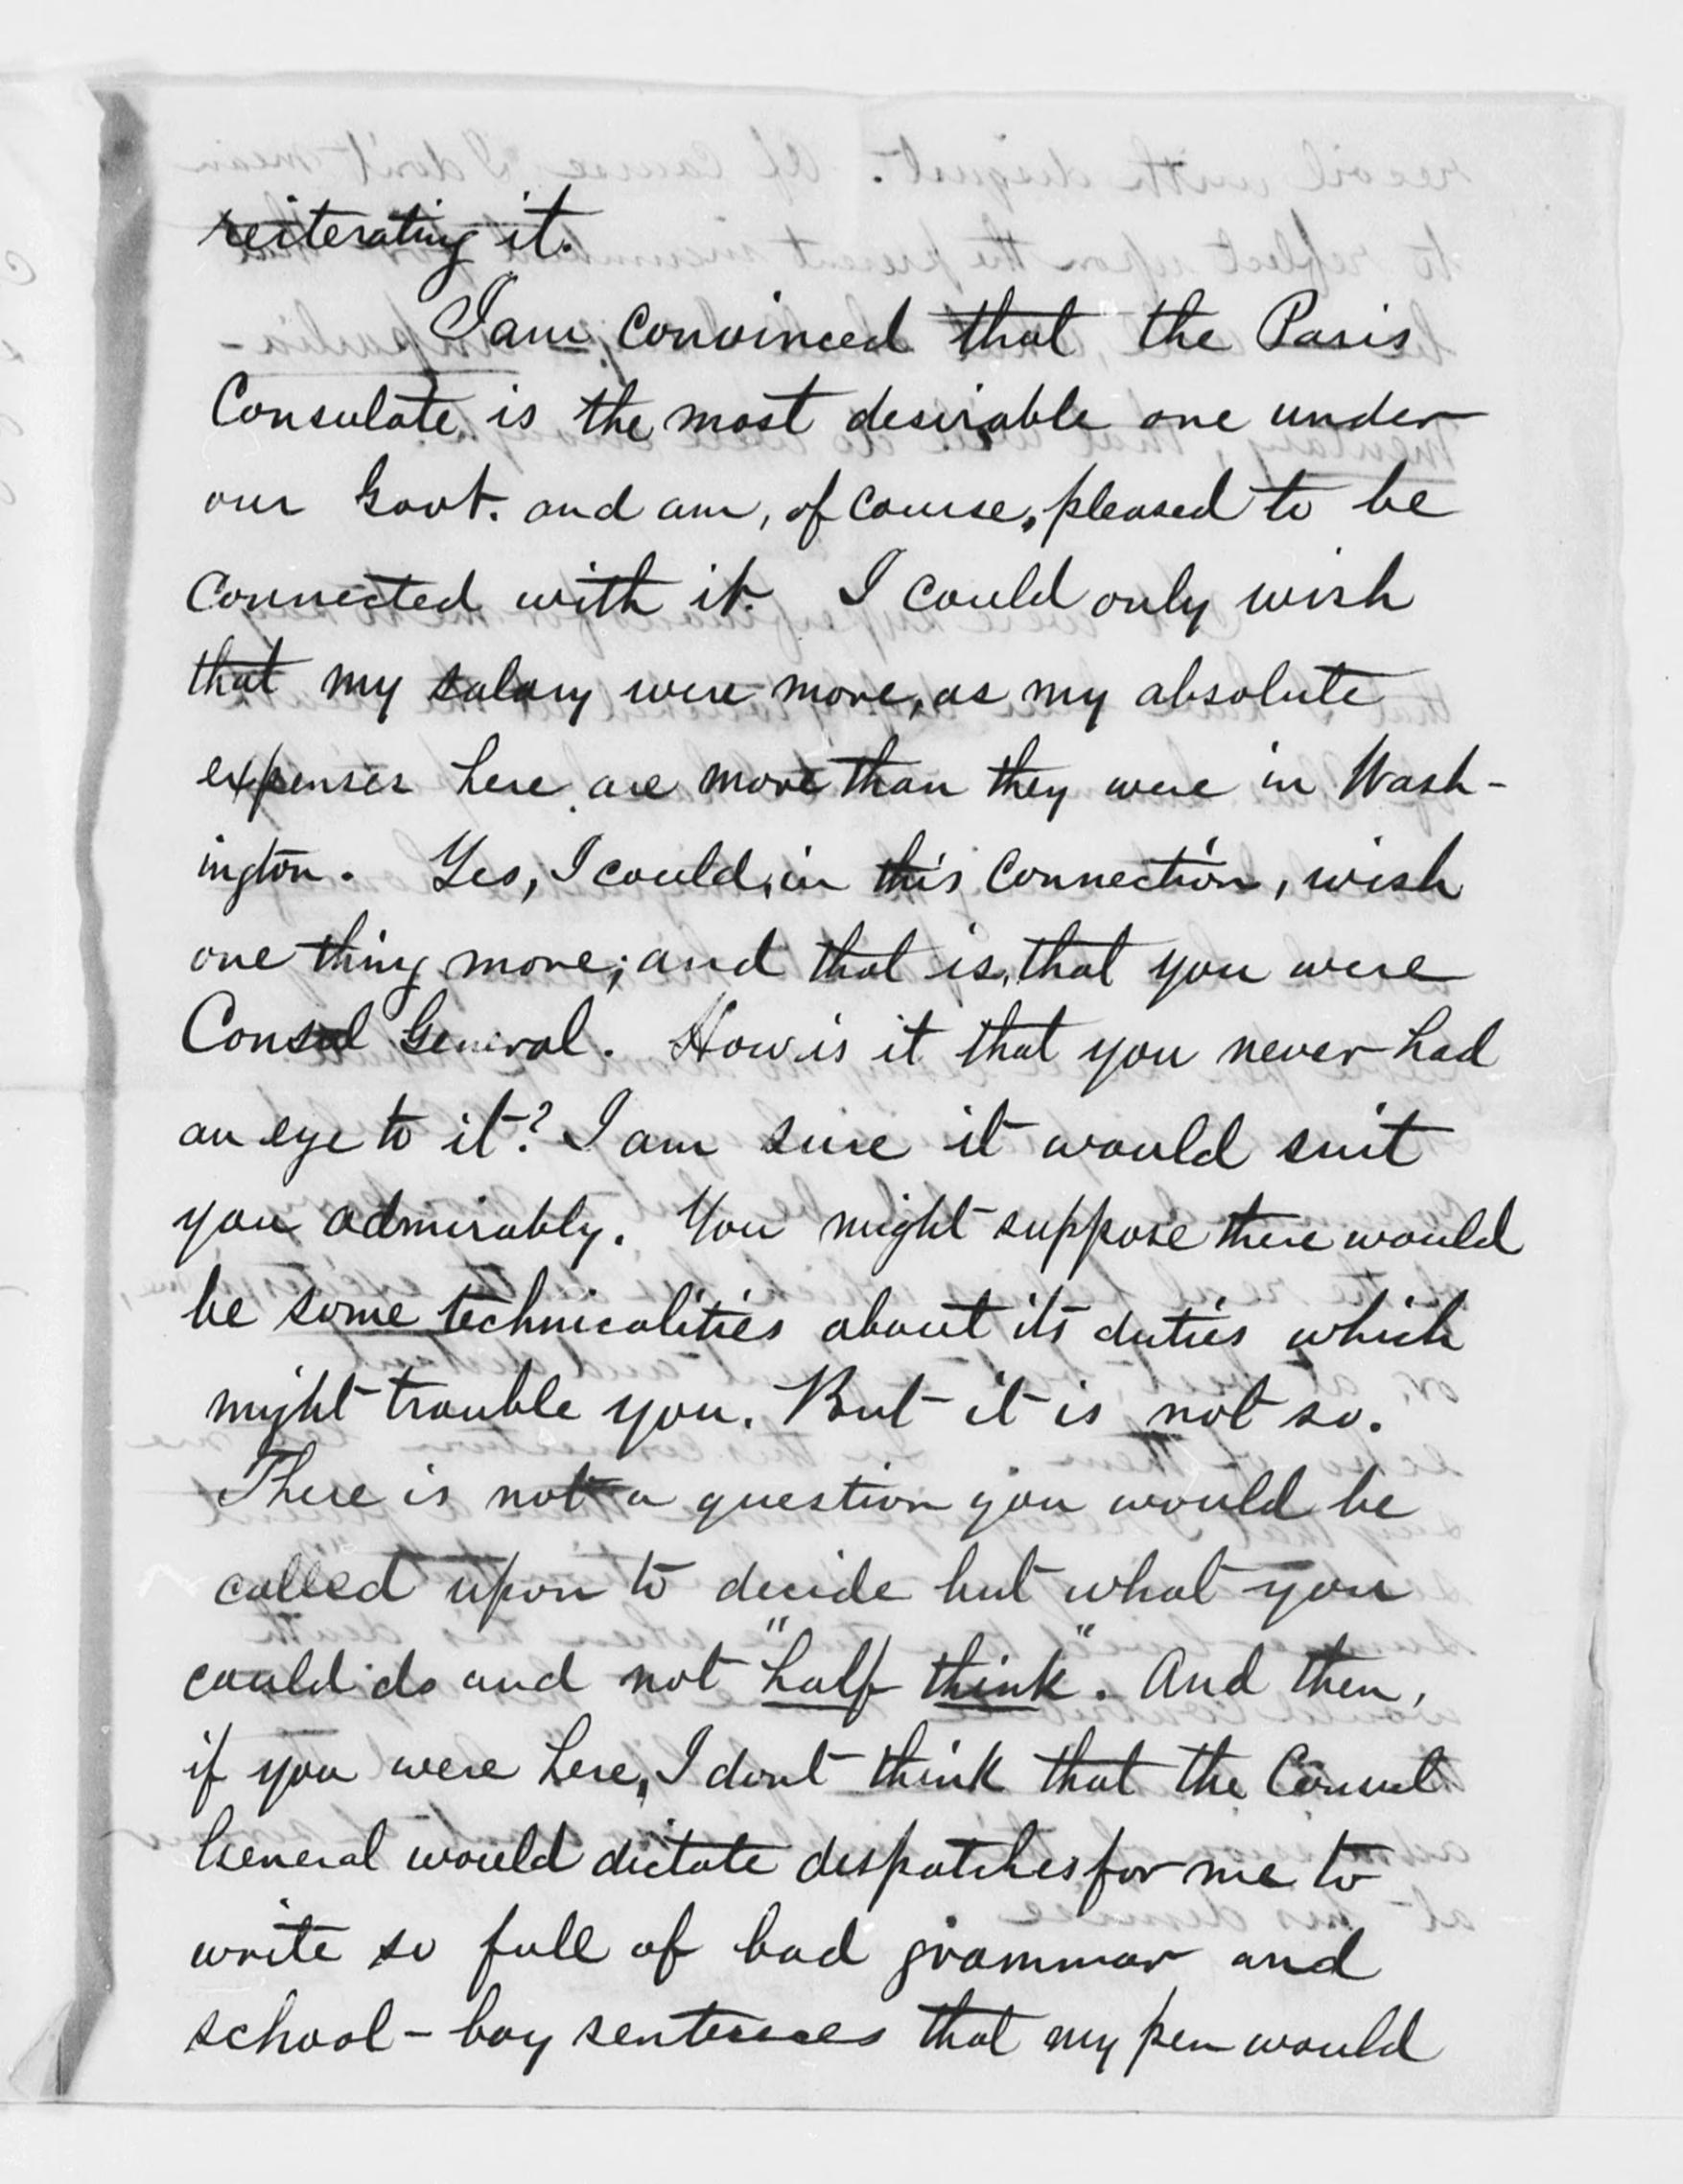 reiterating it.
I am convinced that the Paris
Consulate is the most desirable one under
our Govt. and am, of course, pleased to be
connected with it. I could only wish
that my salary were more, as my absolute
expenses here are more than they were in Wash-
ington. Yes, I could, in this connection, wish
one thing more; and that is, that you were
Consul General. How is it that you never had
an eye to it? I am sure it would suit
you admirably. You might suppose there would
be some technicalities about its duties which
might trouble you. But it is not so.
There is not a question you would be
called upon to decide but what you
could do and not "half think". And then,
if you were here, I dont think that the Consul
General would dictate despatches for me to
write so full of bad grammar and
school-boy sentences that my pen would